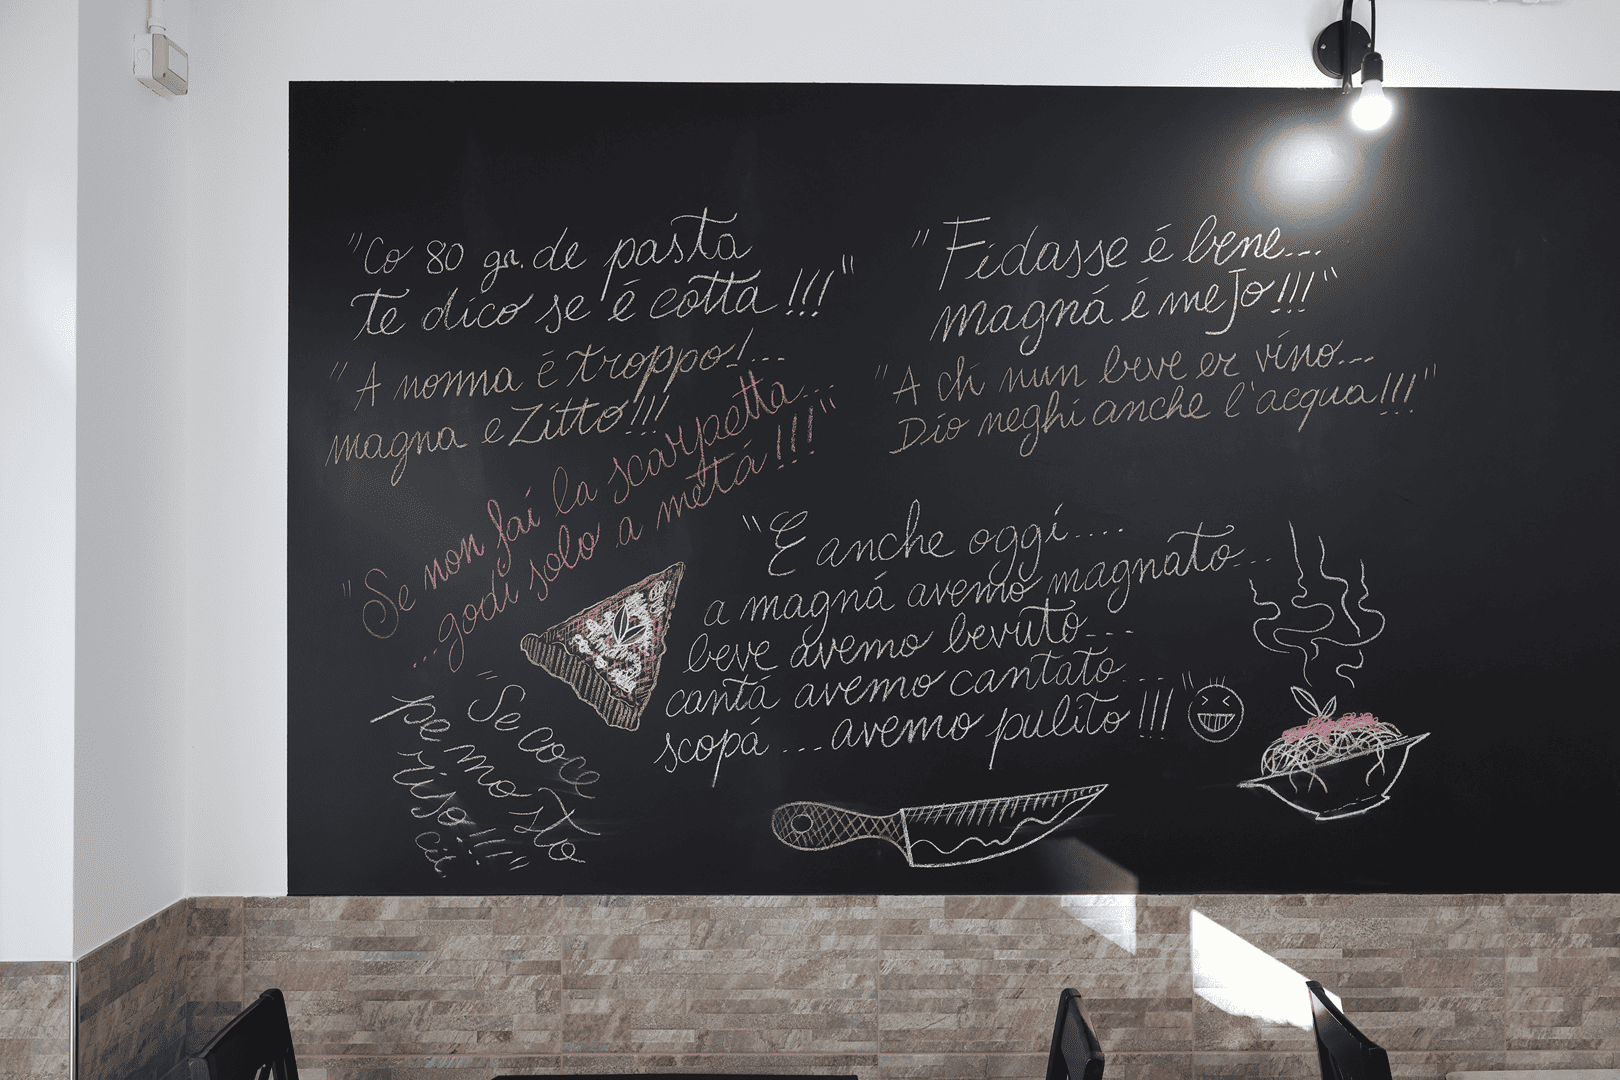 "Co 80 gr. de pasta
te dico se é cotta!!!"
"A nonna é troppo!...
magna e Zitto!!!
"Se non fai la scarpetta...
...godi solo a metá!!!"
"Se coce
pe mo sto
riso!!!"
cit
"Fidasse é bene...
magná é mejo!!!"
"A chi nun beve er vino...
Dio neghi anche l'acqua!!!"
"E anche oggi....
a magná avemo magnato...
beve avemo bevuto...
cantá avemo cantato...
scopá ... avemo pulito!!!"